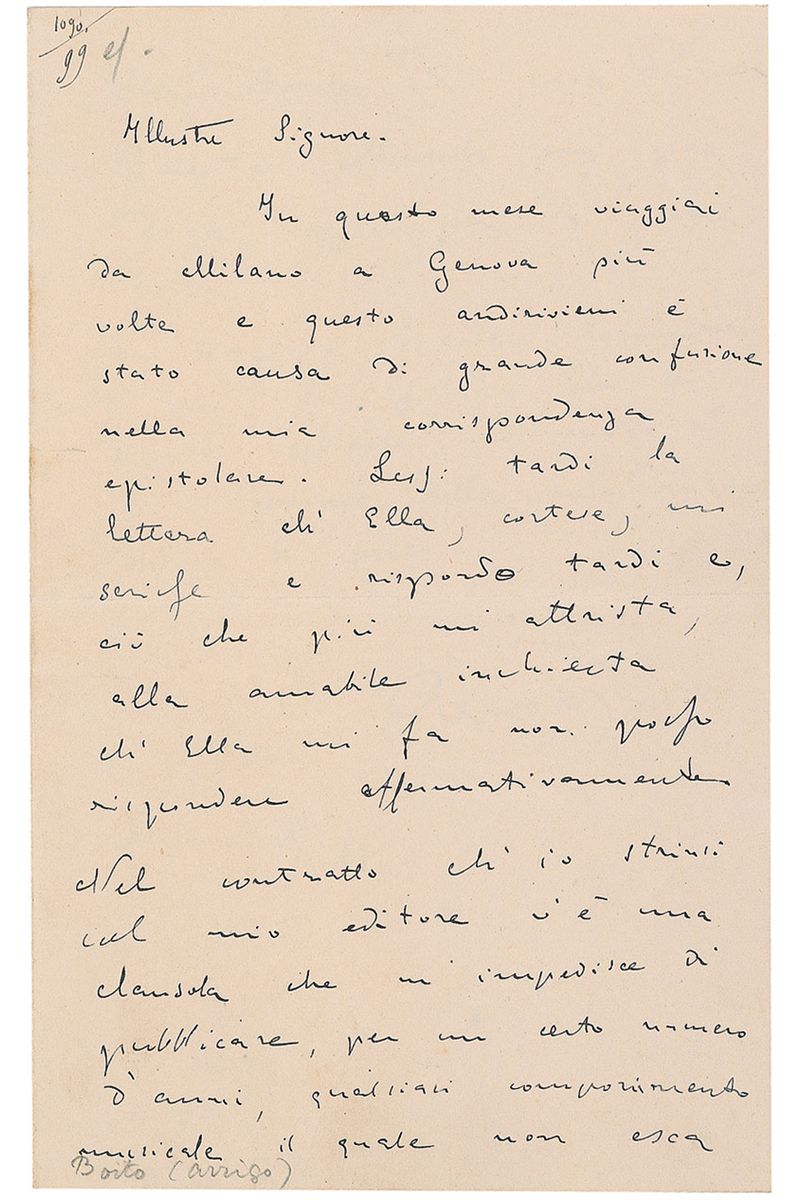 1090.
99
Illustre Signore.
In questo mese viaggiai
da Milano a Genova più
volte e questo andirivieni è
stato causa di grande confusione
nella mia corrispondenza
epistolare. Lessi tardi la
lettera ch' Ella, cortese, mi
scrisse e rispondo tardi e,
ciò che più mi attrista,
alla amabile inchiesta
ch' Ella mi fa non posso
rispondere affermativamente.
Nel contratto ch' io strinsi
col mio editore v' è una
clausola che m' impedisce di
pubblicare, per un certo numero
d' anni, qualsiasi componimento
musicale il quale non esca
Boito (Arrigo)